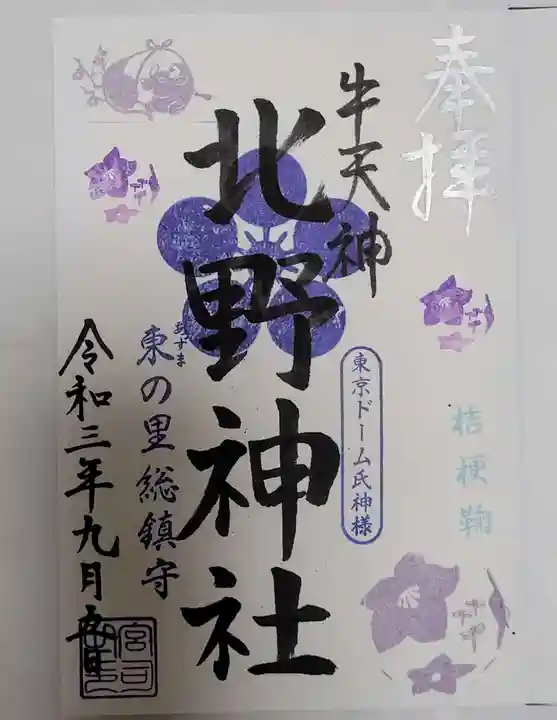 奉拝
桔梗鞠
牛天神
東京ドーム氏神様
北野神社
あずま
東の里総鎮守
令和三年九月
宮司